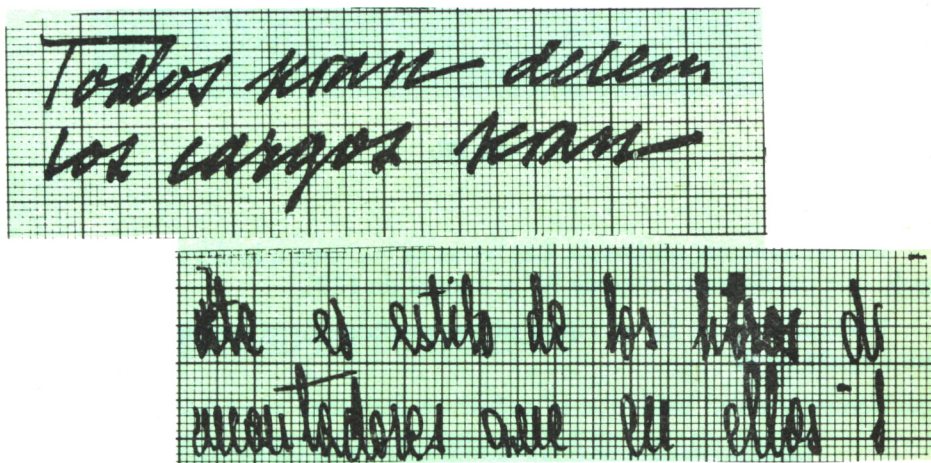 Todos seran desem
los cargos seran
este es estilo de los libros de
montadores que en ellos s